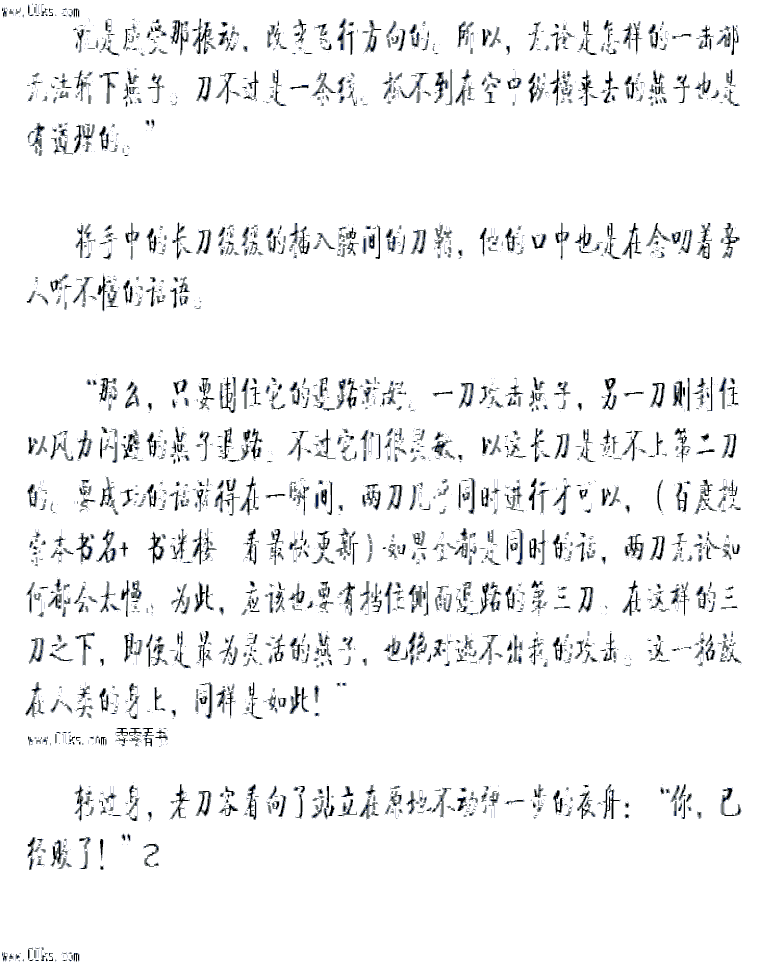 www.00ks.com
就是感受那振动、改变飞行方向的。所以，无论是怎样的一击都
无法斩下燕子。刀不过是一条线。抓不到在空中纵横来去的燕子也是
有道理的。”
将手中的长刀缓缓的插入腰间的刀鞘，他的口中也是在念叨着旁
人听不懂的话语。
“那么，只要围住它的退路就好。一刀攻击燕子，另一刀则封住
以风力闪避的燕子退路。不过它们很灵敏，以这长刀是赶不上第二刀
的。要成功的话就得在一瞬间，两刀几乎同时进行才可以，（百度搜
索本书名+ 书迷楼 看最快更新）如果全都是同时的话，两刀无论如
何都会太慢。为此，应该也要有挡住侧面退路的第三刀。在这样的三
刀之下，即便是最为灵活的燕子，也绝对逃不出我的攻击。这一招放
在人类的身上，同样是如此！”
www.00ks.com 零零看书
转过身，老刀客看向了站立在原地不动弹一步的夜舟：“你，已
经败了！”
www.00ks.com